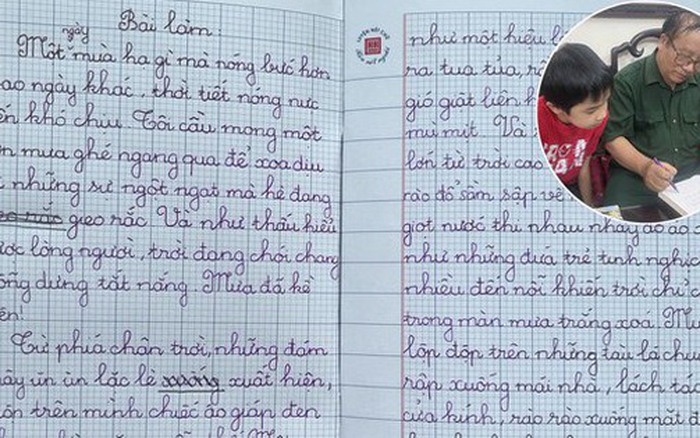 ngày Bài làm:
Một mùa hạ gì mà nóng bức hơn
ao ngày khác, thời tiết nóng nực
ến khó chịu Tôi cầu mong một
n mưa ghé ngang qua để xoa dịu
những sự ngột ngạt mà hè đang
gieo rắc Và như thấu hiểu
ược lòng người, trời đang chói chang
ỗng dưng tắt nắng Mưa đã kề
ên!
Từ phía chân trời, những đám
ây ùn ùn lặc lè xuống xuất hiện,
ôn trên mình chiếc áo giáp đen
như một hiệu l
ra tua tủa, r
gió giật liên h
mù mịt. Và
lớn từ trời cao
rào đổ sầm sập về
giọt nước thi nhau nhảy ào ào
như những đứa trẻ tinh nghịc
nhiều đến nỗi khiến trời chỉ c
trong màn mưa trắng xoá. M
lộp độp trên những tàu lá chu
rập xuống mái nhà, lách tá
cửa kính, rào rào xuống mặt